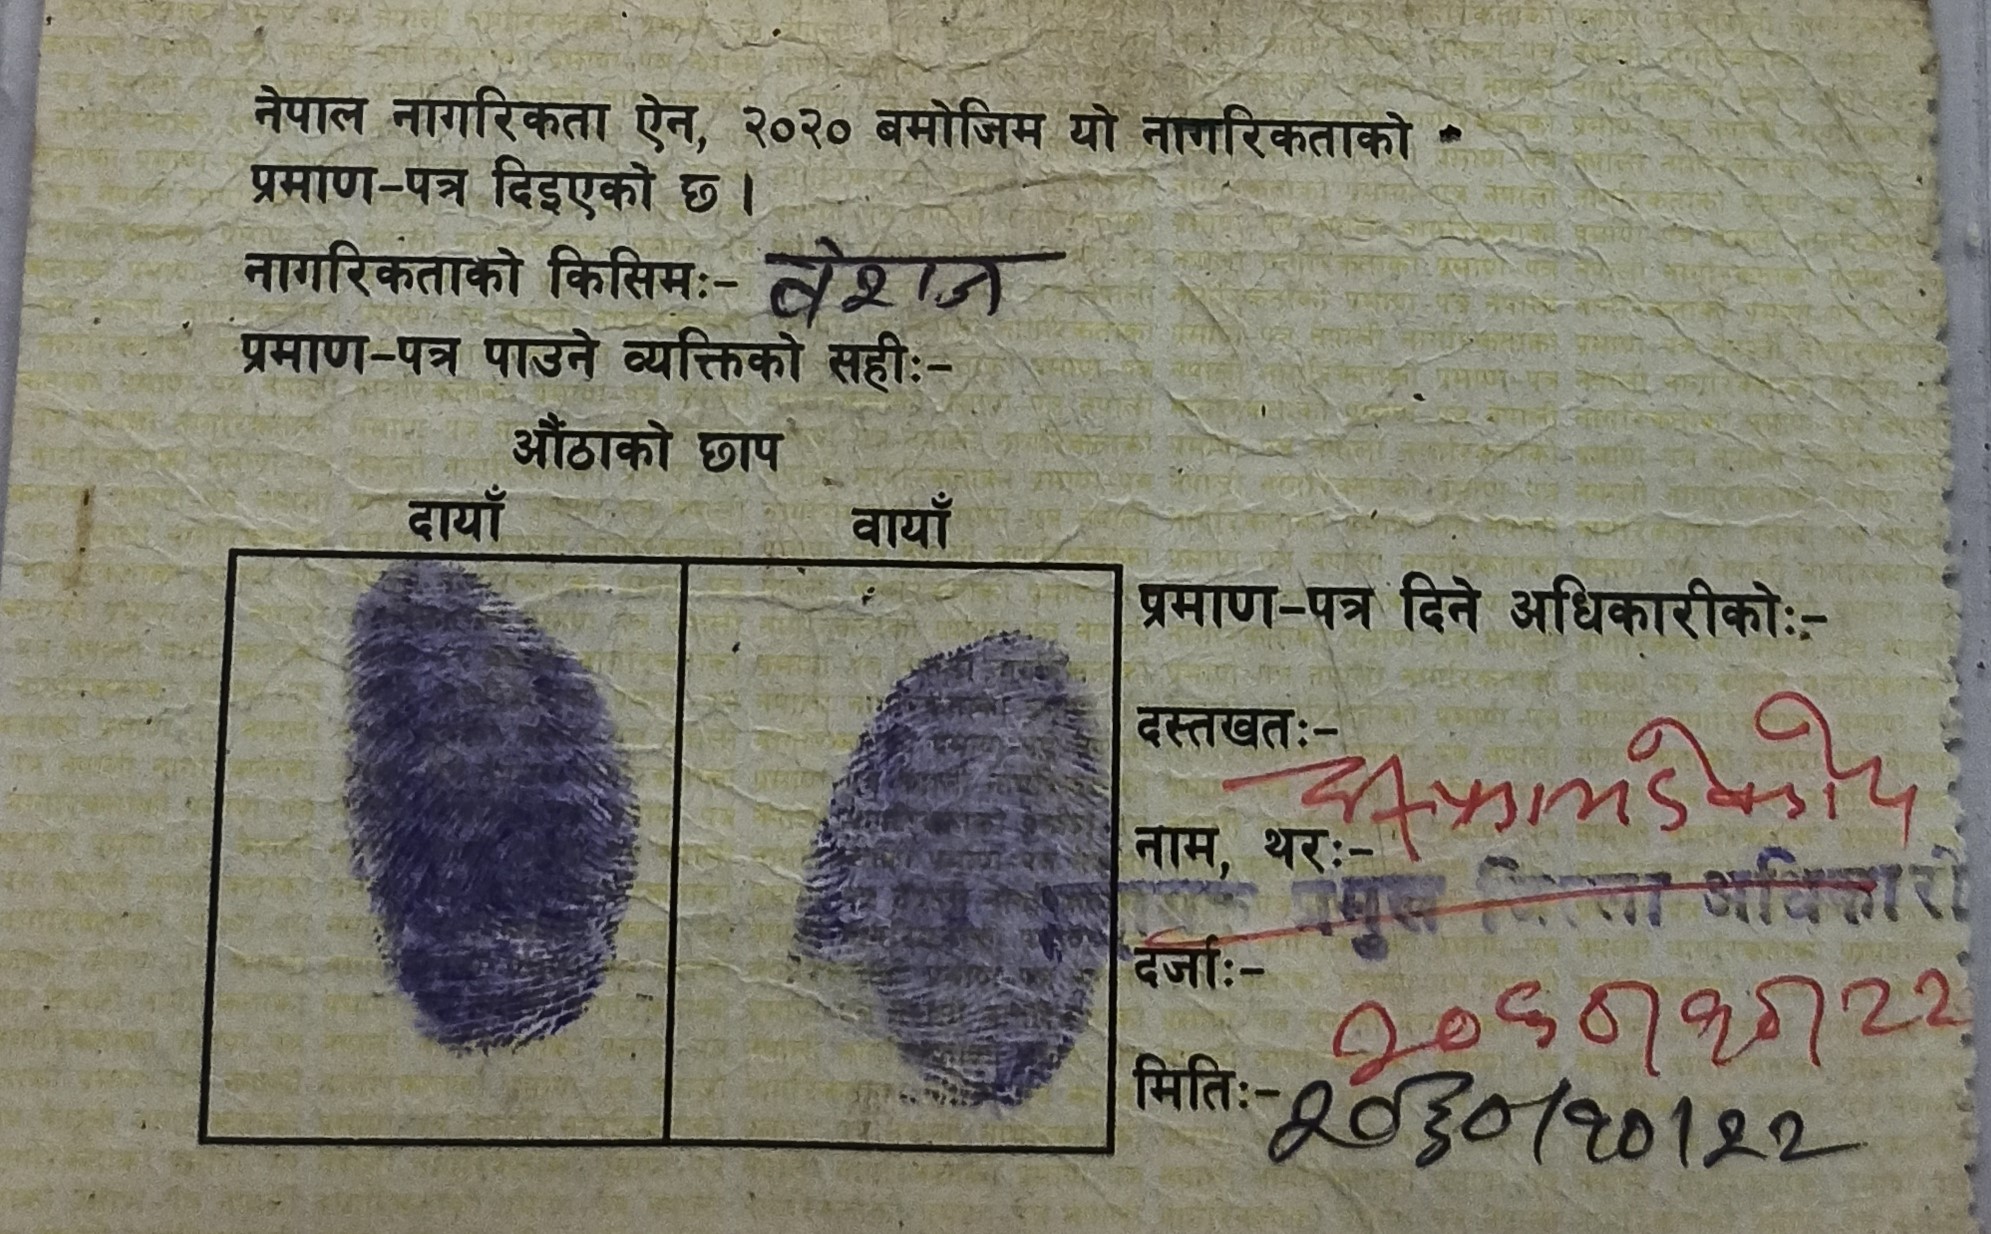 नेपाल नागरिकता ऐन, २०२० बमोजिम यो नागरिकताको
प्रमाण-पत्र दिइएको छ ।
नागरिकताको किसिमः- वंशज
प्रमाण-पत्र पाउने व्यक्तिको सहीः-
औंठाको छाप
दायाँ वायाँ
प्रमाण-पत्र दिने अधिकारीकोः-
दस्तखतः-
नाम, थरः-
प्रमुख जिल्ला अधिकारी
दर्जाः-
२०६०।१०।२२
मितिः- २०६०/१०/२२